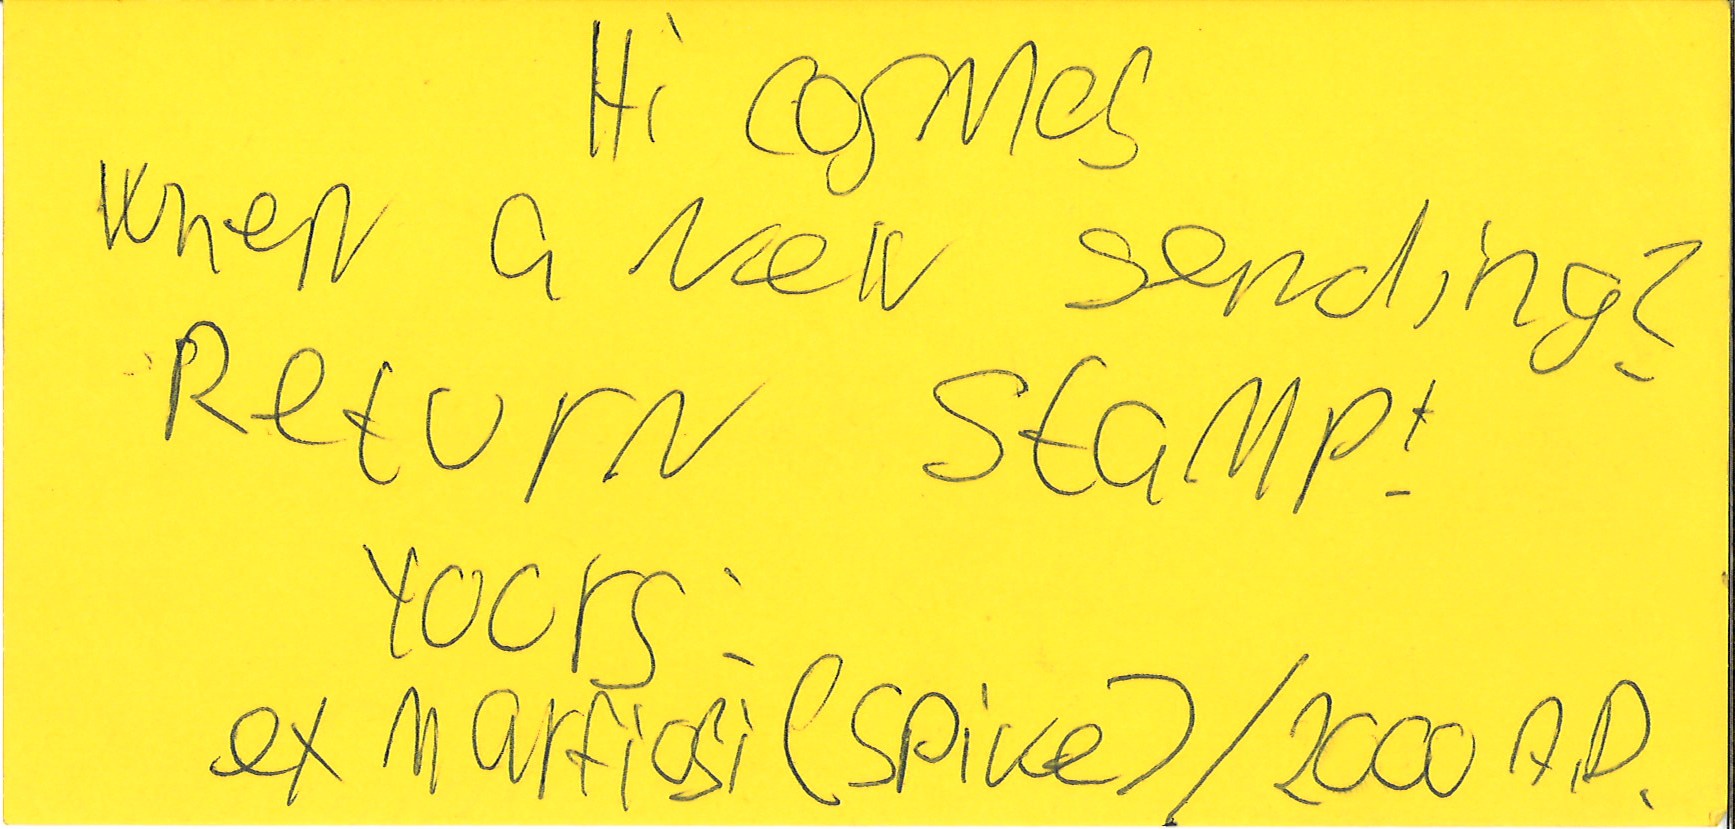 Hi cosmos
When a new sending?
Return stamp!
Yours:
ex (Spike)/2000 A.D.